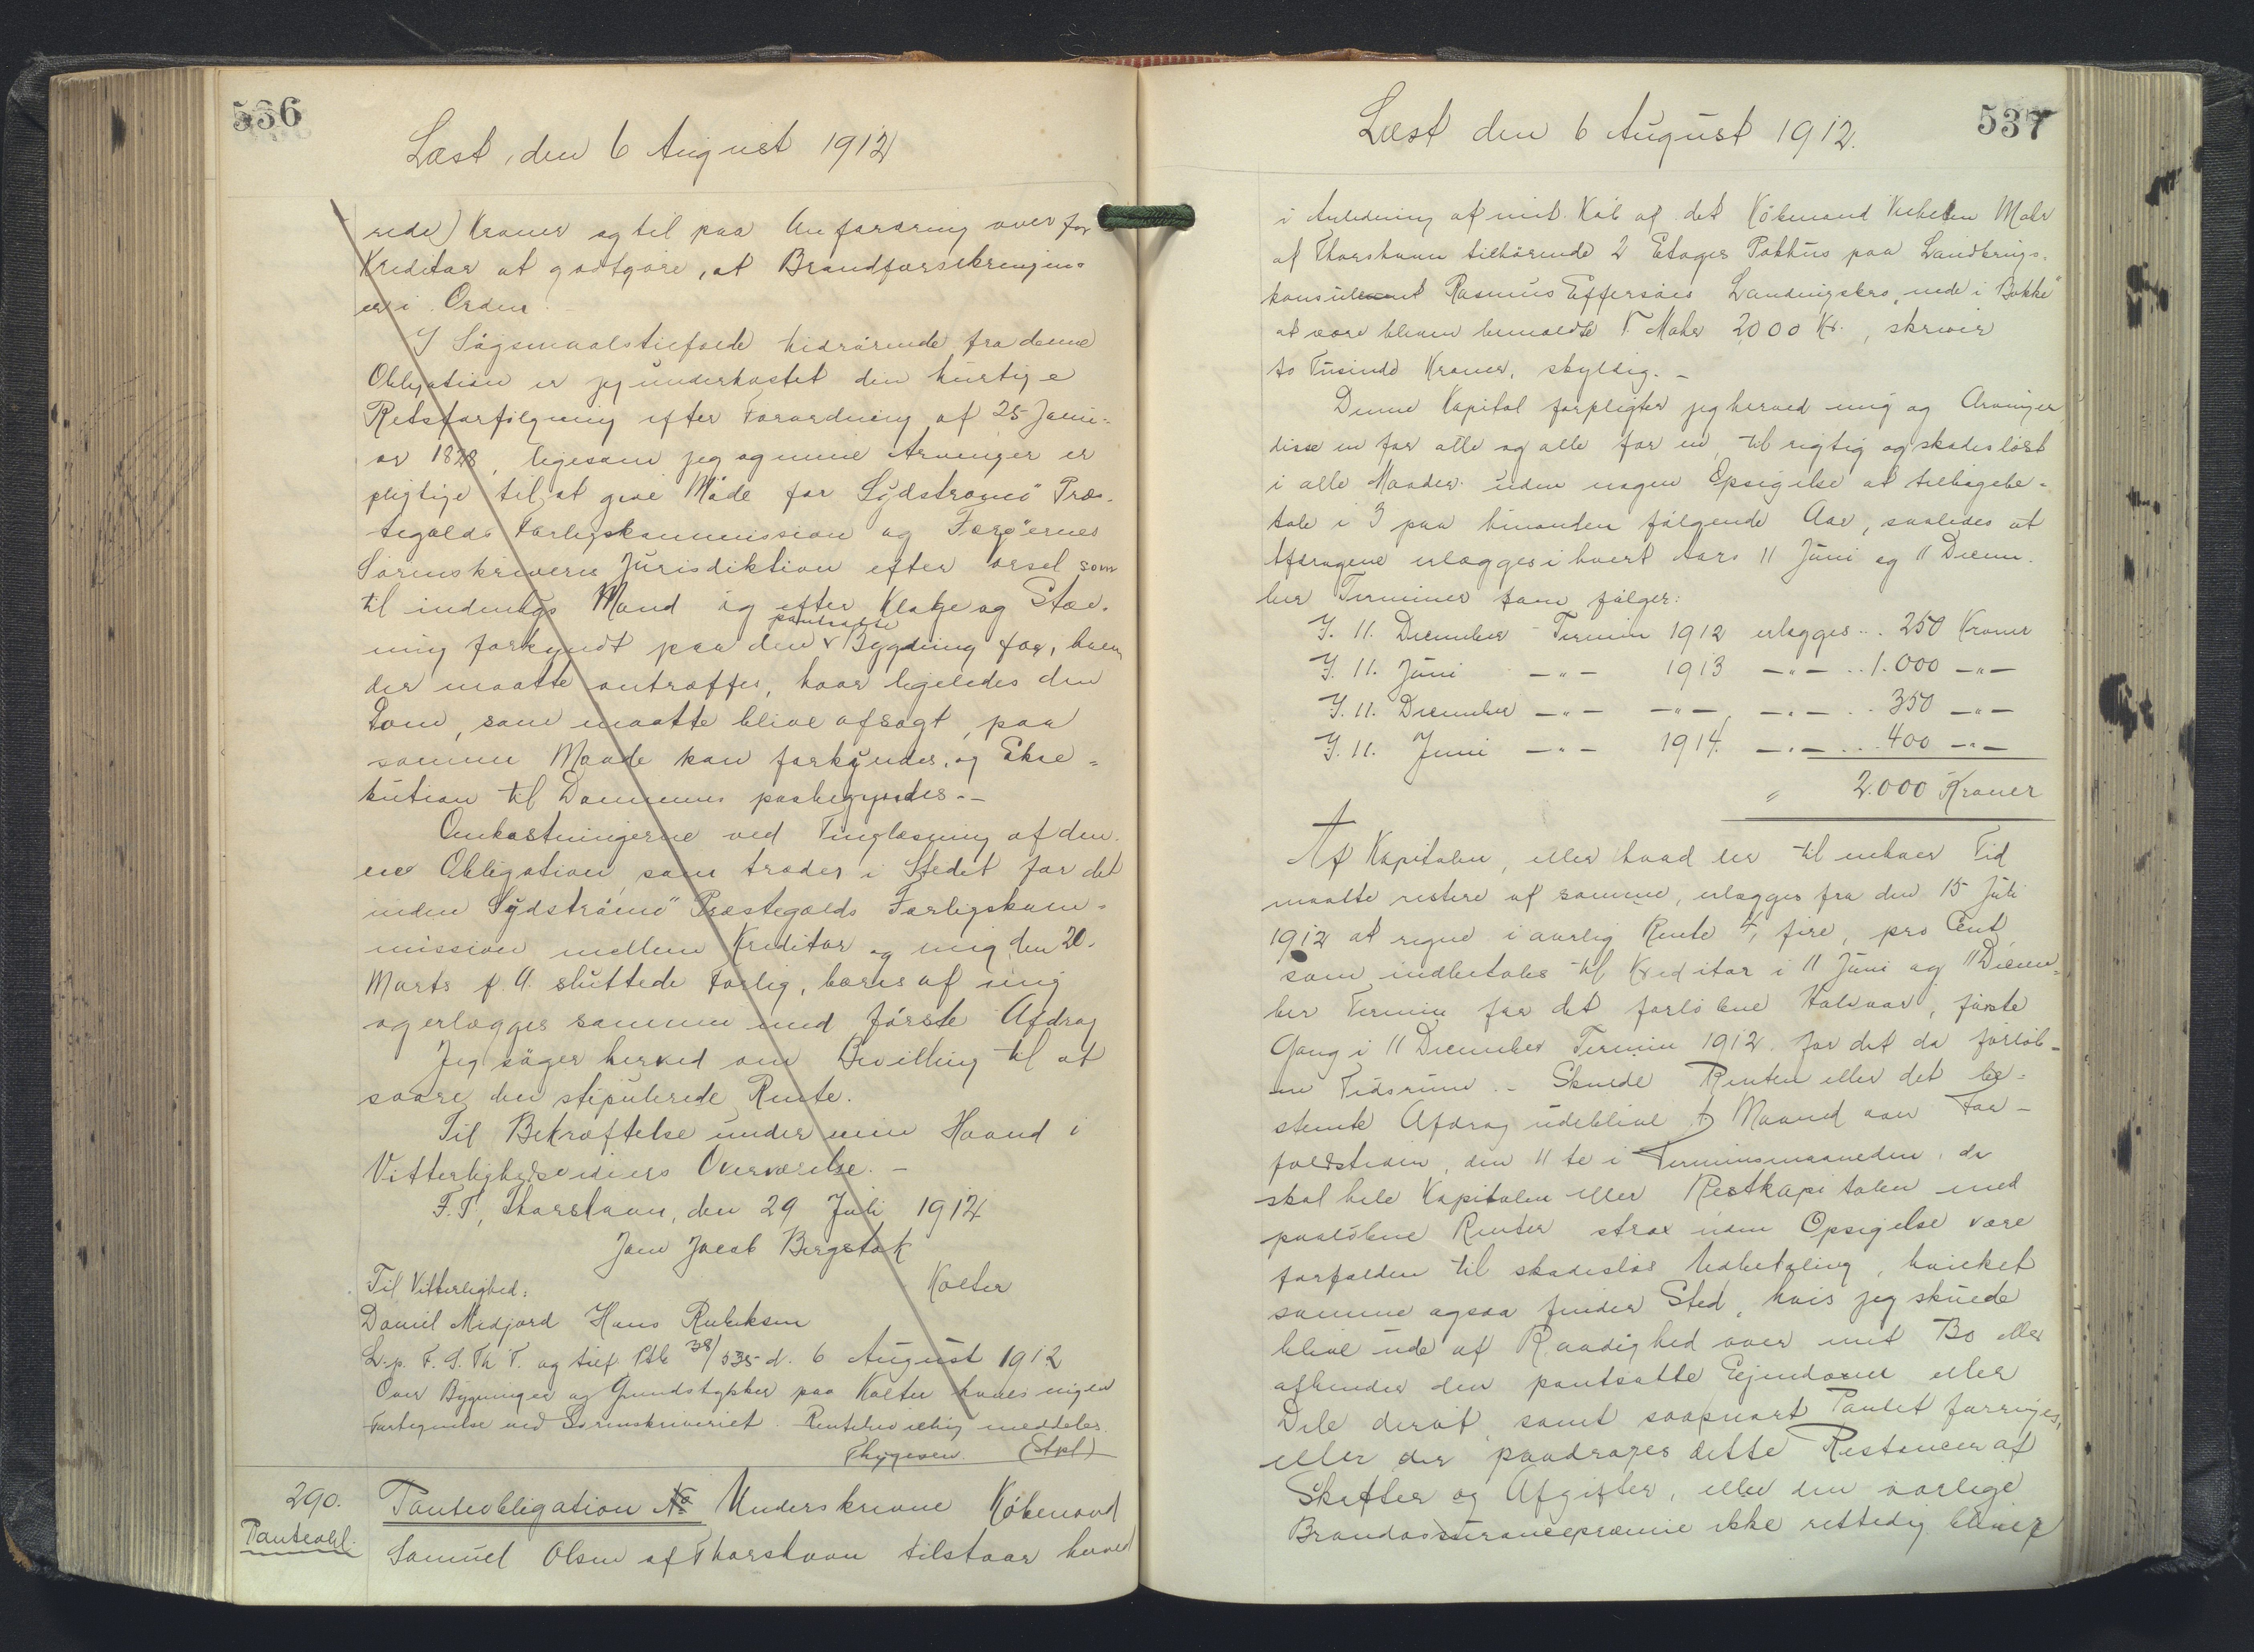 536
Læst, den 6 August 1912
rede) Kroner og til paa Anfordring overfor
Kreditor at godtgøre, at Brandforsikringen
er i Orden.
I Søgsmaalstilfælde hidrørende fra denne
Obligation er jeg underkastet den hurtige
Retsforfølgning efter Forordning af 25 Janu-
ar 1828, ligesom jeg og mine Arvinger er
pligtige til at give Møde for Sydstrømø Præs-
tegælds Forligskommission og Færøernes
Sorenskriveris Jurisdiktion efter Varsel som
til indenbys Mand og efter Klage og Stæv-
ning forkyndt paa den pantsatte Bygning for, hvem
der maatte antræffes, hvor ligeledes den
Dom, som maatte blive afsagt, paa
samme Maade kan forkyndes, og Ekse-
kution til Dommenes paabegyndes.-
Omkostningerne ved Tinglæsning af den-
ne Obligation, som træder i Stedet for det
inden Sydstrømø Præstegælds Forligskom-
mission mellem Kreditor og mig den 20.
Marts f. A. sluttede Forlig, bæres af mig
og erlægges sammen med første Afdrag
Jeg søger herved om Bevilling til at
svare den stipulerede Rente.
Til Bekræftelse under min Haand i
Vitterlighedsvidners Overværelse.-
F.T., Thorshavn, den 29 Juli 1912
Jens Jacob Bergstak
Kolter
Til Vitterlighed:
Daniel Midjord Hans Rubeksen
L. p. F. S. Th T. og tilf. Ptb 38/535 d. 6 August 1912
Over Bygninger og Grundstykker paa Kolter haves ingen
Fortegnelse ved Sorenskriveriet. Rentebevilling meddeles.
Thygesen. (Stpl)
290.
Panteobl.
Panteobligation No Underskrevne Købmand
Samuel Olsen af Thorshavn tilstaar herved
537
Læst den 6 August 1912.
i Anledning af mit Køb af det Købmand Mohr
af Thorshavn tilhørende 2 Etages Pakhus paa Landbrugs-
konsulent Rasmus Effersøes Landingsbro "nede i Bakke"
at være bleven bemeldte Mohr 2000 Kr., skriver
to Tusinde Kroner, skyldig.-
Denne Kapital forpligter jeg herved mig og Arvinger,
disse en for alle og alle for en, til rigtig og skadesløst
i alle Maader uden nogen Opsigelse at tilbagebe-
tale i 3 paa hinanden følgende Aar, saaledes at
Afdragene erlægges i hvert Aars 11 Juni og 11 Decem-
ber Terminer som følger:
I. 11. December - Termin 1912 erlægges... 250 Kroner
I. 11. Juni -"- 1913 -"- .. 1.000 -"-
I. 11. December -"- -"- -"- .. 350 -"-
I. 11. Juni -"- 1914. -"- ... 400 -"-
" 2.000 Kroner
Af Kapitalen, eller hvad der til enhver Tid
maatte restere af samme, erlægges fra den 15 Juli
1912 at regne i aarlig Rente 4, fire, pro Cent,
som indbetales til Kreditor i 11 Juni og 11 Decem-
ber Termin for det forløbne Halvaar, første
Gang i 11 December Termin 1912 for det da forløb-
ne Tidsrum.- Skulde Renten eller det be-
stemte Afdrag udeblive 1 Maaned over For-
faldstiden, den 11 te i Terminsmaaneden, da
skal hele Kapitalen eller Restkapitalen med
paaløbne Renter strax uden Opsigelse være
forfalden til skadesløs Udbetaling, hvilket
samme ogsaa finder Sted, hvis jeg skulde
blive ude af Raadighed over mit Bo eller
afhænder den pantsatte Ejendom eller
Dele deraf, samt saasnart Pantet forringes,
eller der paadrages dette Restancer af
Skatter og Afgifter, eller den aarlige
Brandassurancepræmie ikke rettidig bliver